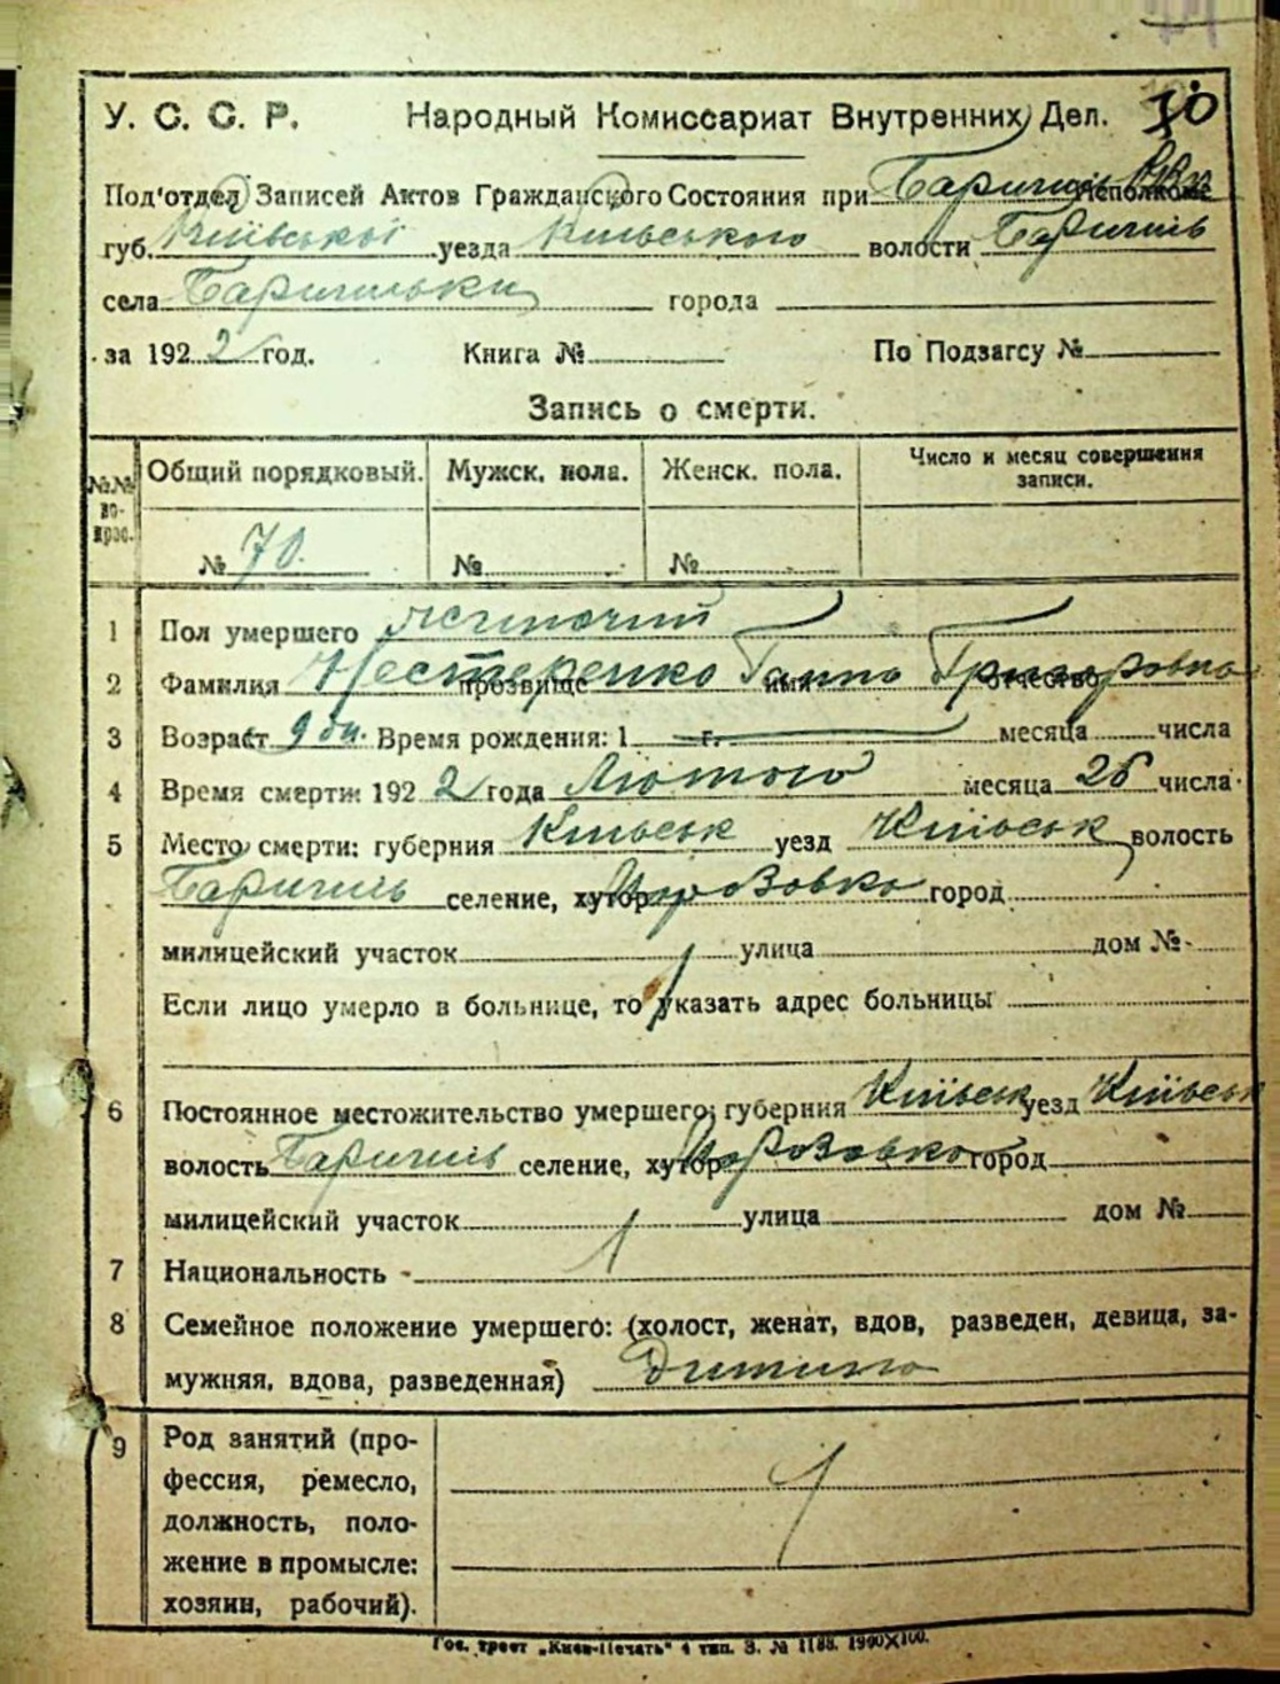 70
У. С. С. Р. Народный Комиссариат Внутренних Дел.
Под'отдел Записей Актов Гражданского Состояния при Исполкоме
губ. Київської уезда Київського волости Баришпіль
села города
за 1922 год. Книга № По Подзагсу №
Запись о смерти.
№№ во-прос. Общий порядковый. Мужск. пола. Женск. пола. Число и месяц совершения записи.
№ 70. № №
1 Пол умершего жіночий
2 Фамилия Нестеренко прозвище Ганна имя Григоровна отчество
3 Возраст 9 дн. Время рождения: 1 г. месяца числа
4 Время смерти: 1922 года Лютого месяца 26 числа
5 Место смерти: губерния Київськ уезд Київськ волость
Баришпіль селение, хутор город
милицейский участок улица дом №
Если лицо умерло в больнице, то указать адрес больницы
6 Постоянное местожительство умершего: губерния Київськ уезд Київськ
волость Баришпіль селение, хутор город
милицейский участок улица дом №
7 Национальность
8 Семейное положение умершего: (холост, женат, вдов, разведен, девица, за-
мужняя, вдова, разведенная) Дитина
9 Род занятий (про-
фессия, ремесло,
должность, поло-
жение в промысле:
хозяин, рабочий).
Гос. трест „Киев-Печать" 4 тип. З. № 1188. 1900X100.